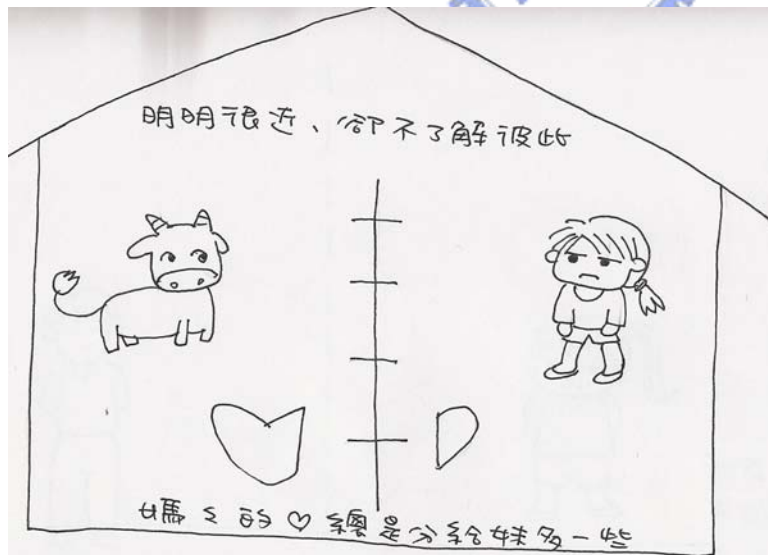 明明很近、卻不了解彼此
媽々的♡總是分給妹多一些